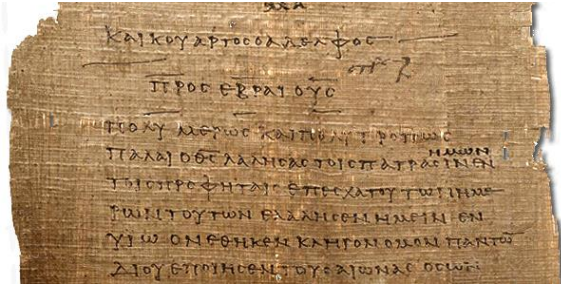 ΚΑΙΚΟΥΑΡΤΟϹΟΑΔΕΛΦΟϹ
ΠΡΟϹ ΕΒΡΑΙΟΥϹ
ΠΟΛΥΜΕΡΩϹ ΚΑΙΠΟΛΥΤΡΟΠΩϹ
ΗΜΩΝ
ΠΑΛΑΙ ΟΘ̅Ϲ̅ ΛΑΛΗϹΑϹ ΤΟΙϹ ΠΑΤΡΑϹΙΝ ΕΝ
ΤΟΙϹ ΠΡΟΦΗΤΑΙϹ ΕΠΕϹΧΑΤΟΥ ΤΩΝ ΗΜΕ
ΡΩΝ ΤΟΥΤΩΝ ΕΛΑΛΗϹΕΝ ΗΜΕΙΝ ΕΝ
ΥΙΩ ΟΝ ΕΘΗΚΕΝ ΚΛΗΡΟΝΟΜΟΝ ΠΑΝΤΩ̅
ΔΙΟΥ ΕΠΟΙΗϹΕΝ ΤΟΥϹ ΑΙΩΝΑϹ ΟϹ ΩΝ